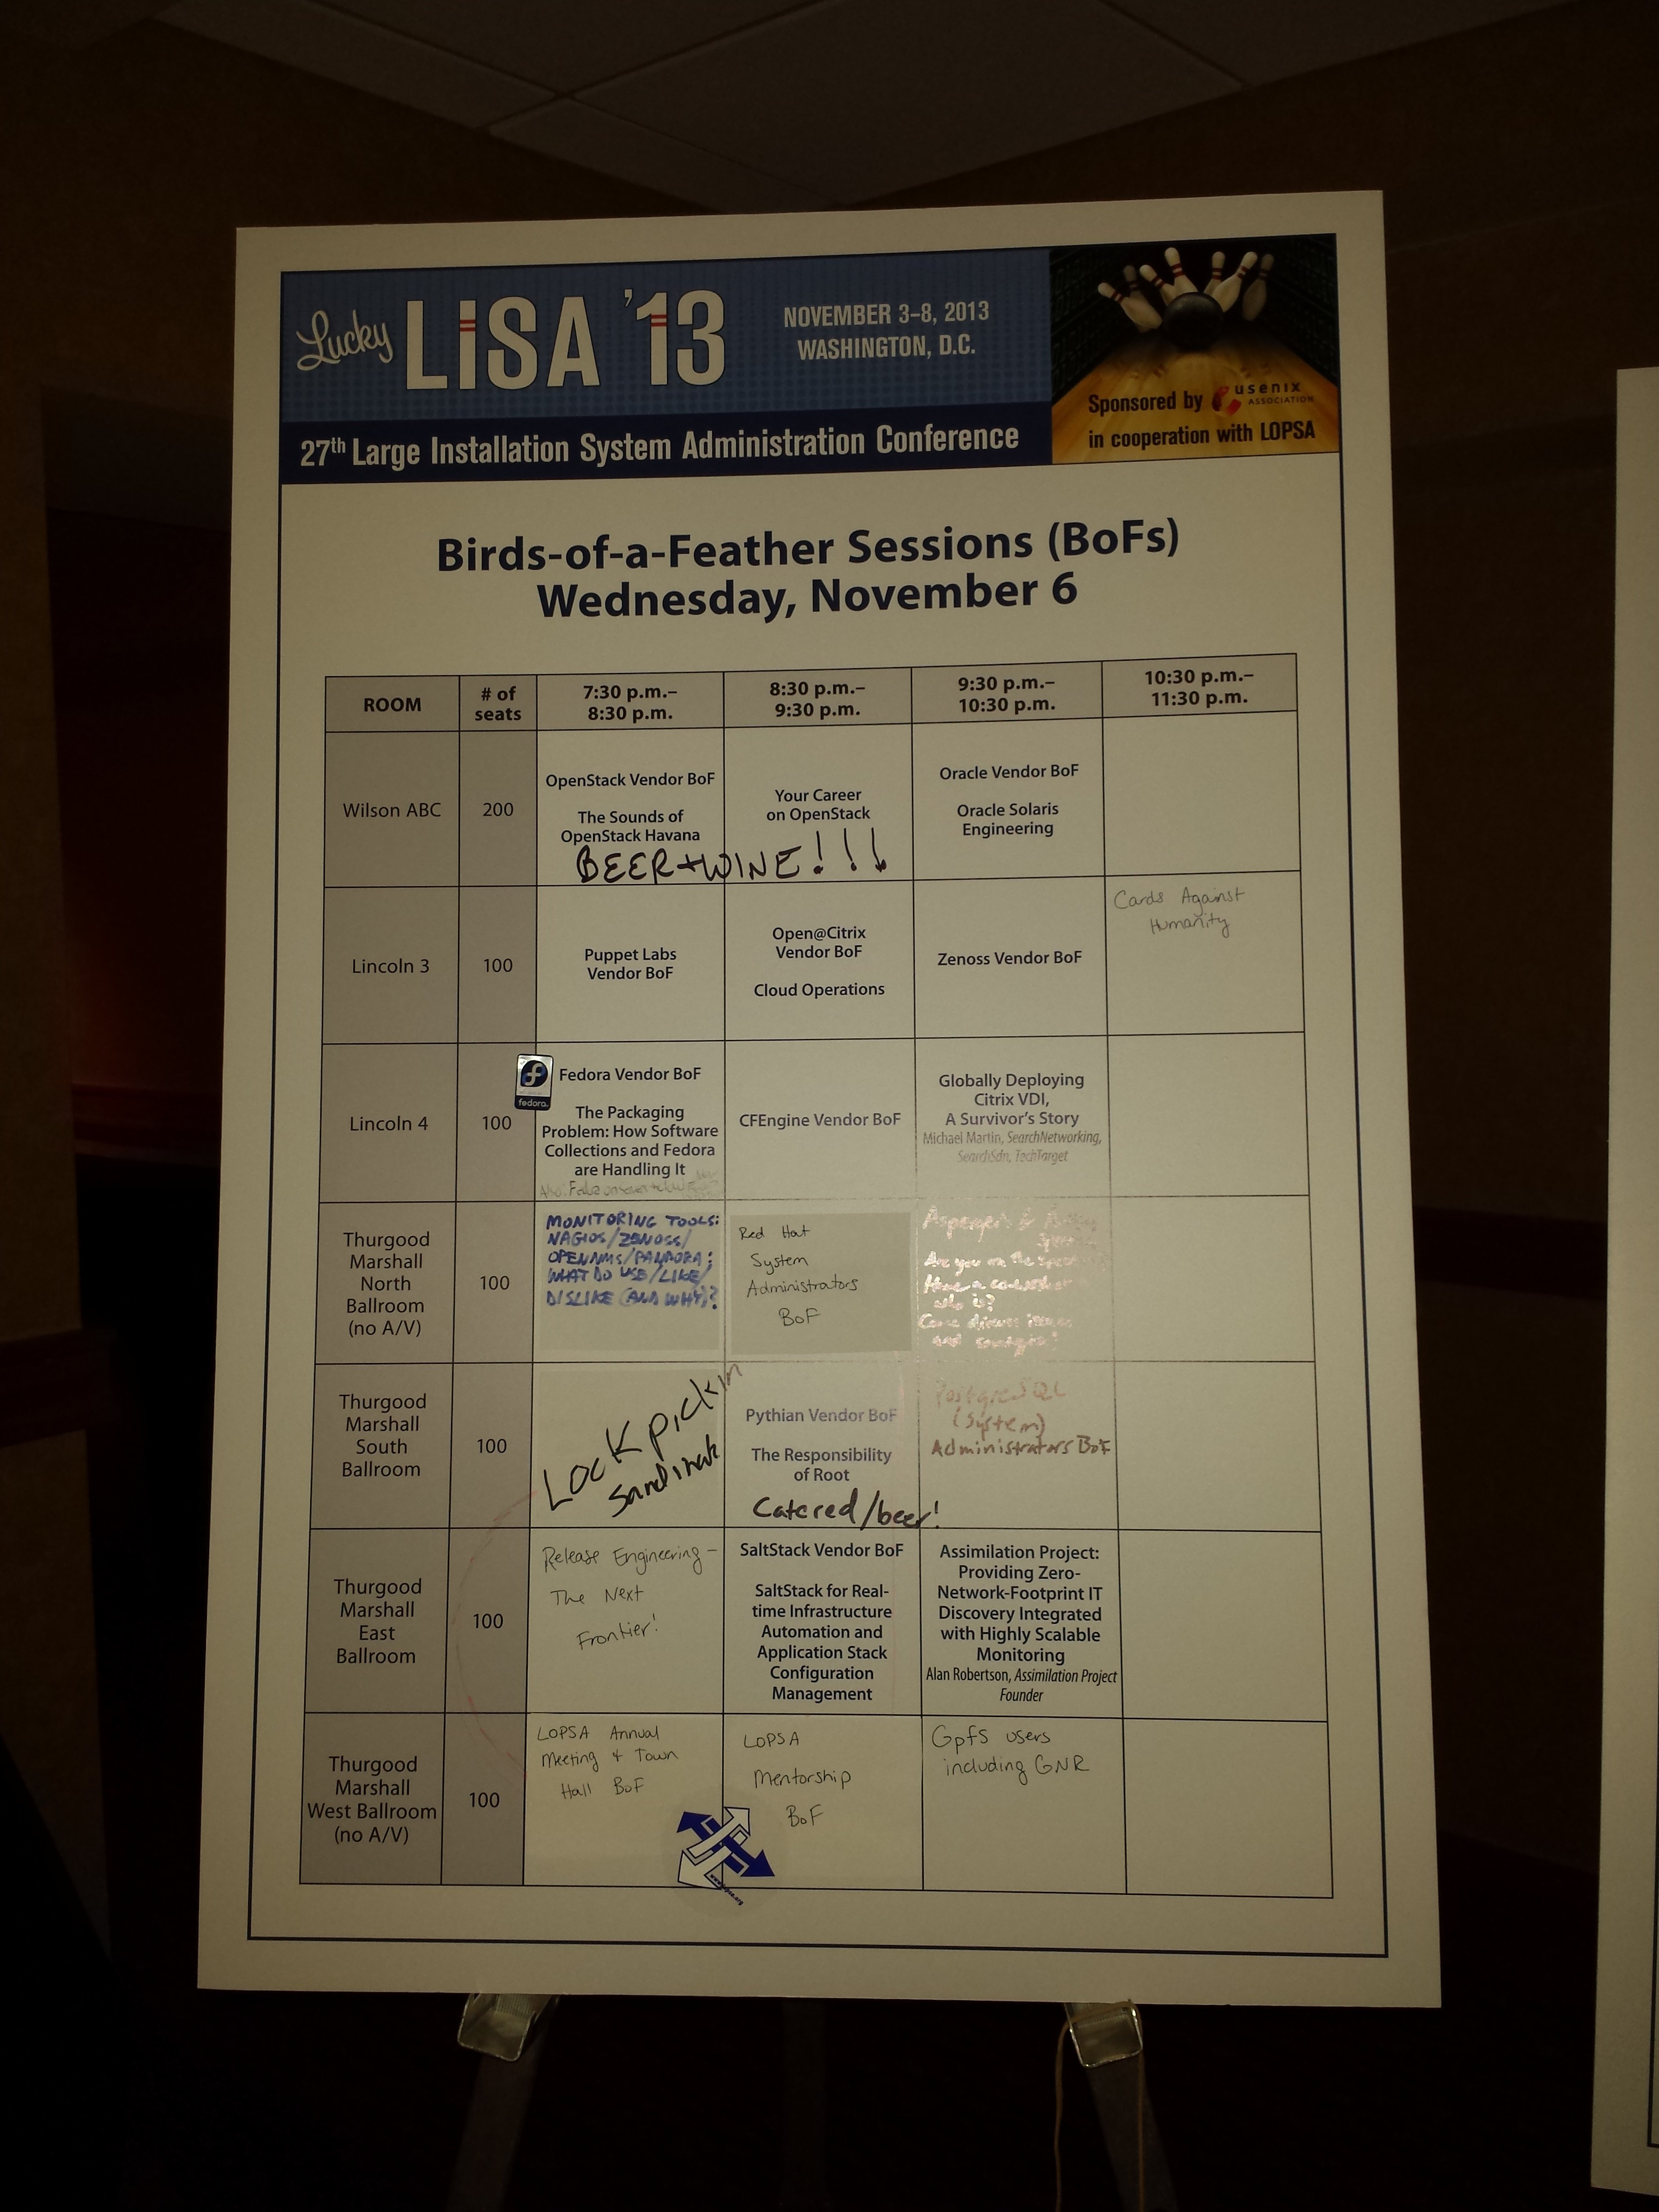 Lucky LiSA '13
NOVEMBER 3–8, 2013
WASHINGTON, D.C.
Sponsored by usenix
ASSOCIATION
in cooperation with LOPSA
27th Large Installation System Administration Conference
Birds-of-a-Feather Sessions (BoFs)
Wednesday, November 6
ROOM
# of
seats
7:30 p.m.–
8:30 p.m.
8:30 p.m.–
9:30 p.m.
9:30 p.m.–
10:30 p.m.
10:30 p.m.–
11:30 p.m.
Wilson ABC
200
OpenStack Vendor BoF
The Sounds of
OpenStack Havana
Your Career
on OpenStack
BEER+WINE!!!
Oracle Vendor BoF
Oracle Solaris
Engineering
Lincoln 3
100
Puppet Labs
Vendor BoF
Open@Citrix
Vendor BoF
Cloud Operations
Zenoss Vendor BoF
Cards Against
Humanity
Lincoln 4
100
fedora
Fedora Vendor BoF
The Packaging
Problem: How Software
Collections and Fedora
are Handling It
CFEngine Vendor BoF
Globally Deploying
Citrix VDI,
A Survivor's Story
Michael Martin, SearchNetworking,
SearchSdn, TechTarget
Thurgood
Marshall
North
Ballroom
(no A/V)
100
MONITORING TOOLS:
NAGIOS/ZENOSS/
OPENNMS/PANDORA:
WHAT DO USE/LIKE/
DISLIKE (AND WHY)?
Red Hat
System
Administrators
BoF
Asperger's &
Are you on the
Have a co-worker
who is?
Come discuss issues
and
Thurgood
Marshall
South
Ballroom
100
Lockpickin
Pythian Vendor BoF
The Responsibility
of Root
Catered/beer!
PostgreSQL
(System)
Administrators BoF
Thurgood
Marshall
East
Ballroom
100
Release Engineering –
The Next
Frontier!
SaltStack Vendor BoF
SaltStack for Real-
time Infrastructure
Automation and
Application Stack
Configuration
Management
Assimilation Project:
Providing Zero-
Network-Footprint IT
Discovery Integrated
with Highly Scalable
Monitoring
Alan Robertson, Assimilation Project
Founder
Thurgood
Marshall
West Ballroom
(no A/V)
100
LOPSA Annual
Meeting & Town
Hall BoF
LOPSA
Mentorship
BoF
Gpfs users
including GNR